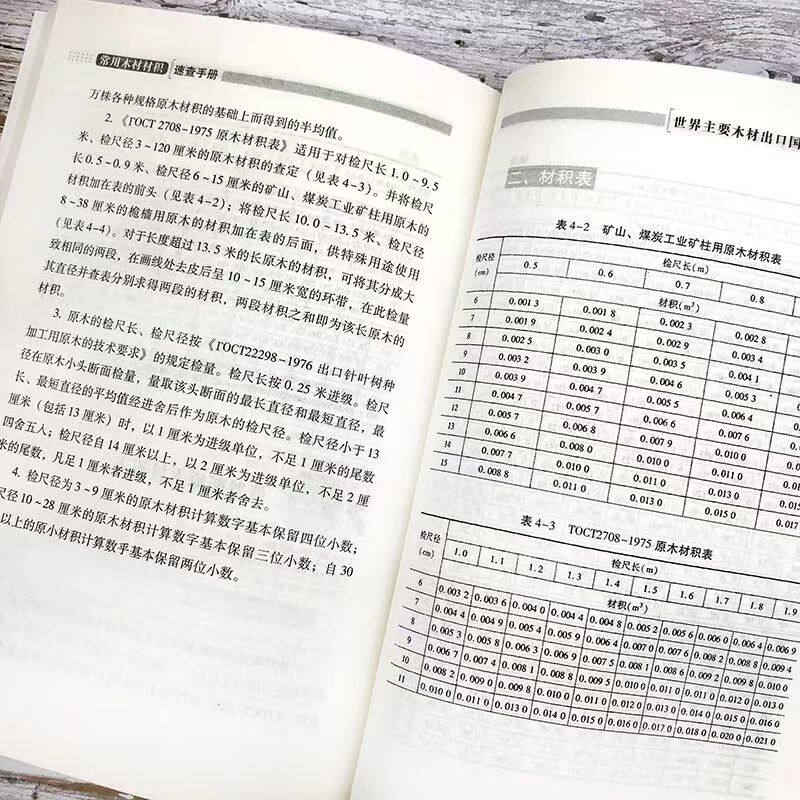 常用木材材积 速查手册
万株各种规格原木材积的基础上而得到的半均值。
2. 《ТОСТ 2708-1975 原木材积表》适用于对检尺长 1.0~9.5
米、检尺径 3~120 厘米的原木材积的查定（见表 4-3）。并将检尺
长 0.5~0.9 米、检尺径 6~15 厘米的矿山、煤炭工业矿柱用原木的
材积加在表的前头（见表 4-2）；将检尺长 10.0~13.5 米、检尺径
8~38 厘米的桅樯用原木的材积加在表的后面，供特殊用途使用
（见表 4-4）。对于长度超过 13.5 米的长原木的材积，可将其分成大
致相同的两段，在画线处去皮后呈 10~15 厘米宽的环带，在此检量
其直径并查表分别求得两段的材积，两段材积之和即为该长原木的
材积。
3. 原木的检尺长、检尺径按《ТОСТ22298-1976 出口针叶树种
加工用原木的技术要求》的规定检量。检尺长按 0.25 米进级。检尺
径在原木小头断面检量，量取该头断面的最长直径和最短直径，最
长、最短直径的平均值经进舍后作为原木的检尺径。检尺径小于 13
厘米（包括 13 厘米）时，以 1 厘米为进级单位，不足 1 厘米的尾数
四舍五人；检尺径自 14 厘米以上，以 2 厘米为进级单位，不足 2 厘
米的尾数，凡足 1 厘米者进级，不足 1 厘米者舍去。
4. 检尺径为 3~9 厘米的原木材积计算数字基本保留四位小数；
尺径 10~28 厘米的原木材积计算数字基本保留三位小数；自 30
以上的原小材积计算数乎基本保留两位小数。
世界主要木材出口国
二、材积表
表 4-2 矿山、煤炭工业矿柱用原木材积表
检尺径 (cm) 检尺长(m)
0.5 0.6 0.7 0.8
材积(m³)
6 0.001 3 0.001 8 0.002 3 0.002 8
7 0.001 9 0.002 4 0.002 9 0.003 4
8 0.002 5 0.003 0 0.003 5 0.004 1
9 0.003 2 0.003 9 0.004 6 0.005 2
10 0.003 9 0.004 7 0.005 5 0.006 4
11 0.004 7 0.005 7 0.006 7 0.007 6
12 0.005 7 0.006 8 0.007 9 0.010 0
13 0.006 6 0.008 0 0.010 0 0.011 0
14 0.007 8 0.010 0 0.011 0 0.013 0
15 0.008 8 0.011 0 0.013 0 0.015 0
表 4-3 ТОСТ2708-1975 原木材积表
检尺径 (cm) 检尺长(m)
1.0 1.1 1.2 1.3 1.4 1.5 1.6 1.7 1.8 1.9
材积(m³)
6 0.003 2 0.003 6 0.004 0 0.004 4 0.004 8 0.005 2 0.005 6 0.006 0 0.006 4 0.006 9
7 0.004 4 0.004 9 0.005 4 0.005 9 0.006 4 0.007 0 0.007 6 0.008 2 0.008 8 0.009 4
8 0.005 3 0.005 8 0.006 3 0.006 9 0.007 5 0.008 1 0.008 6 0.009 2 0.009 8 0.010 0
9 0.006 7 0.007 4 0.008 1 0.008 8 0.009 5 0.010 0 0.011 0 0.011 0 0.012 0 0.013 0
10 0.008 2 0.009 0 0.009 8 0.010 0 0.011 0 0.012 0 0.013 0 0.014 0 0.015 0 0.016 0
11 0.010 0 0.011 0 0.013 0 0.014 0 0.015 0 0.016 0 0.017 0 0.018 0 0.020 0 0.021 0